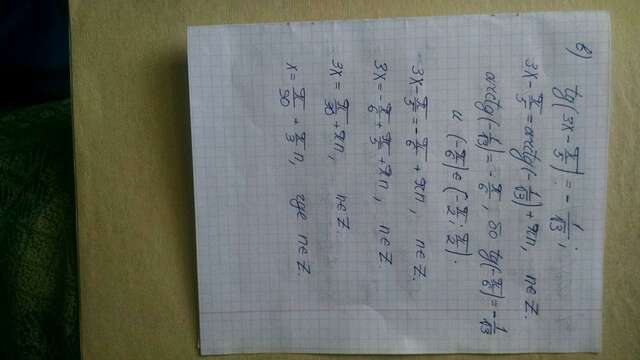 в) tg(3x - π/5) = - 1/√3;
3x - π/5 = arctg(- 1/√3) + πn, n∈Z.
arctg(- 1/√3) = - π/6, бо tg(- π/6) = - 1/√3
и (- π/6) ∈ (- π/2; π/2).
3x - π/5 = - π/6 + πn, n∈Z.
3x = - π/6 + π/5 + πn, n∈Z.
3x = π/30 + πn, n∈Z.
x = π/90 + π/3 n, где n∈Z.